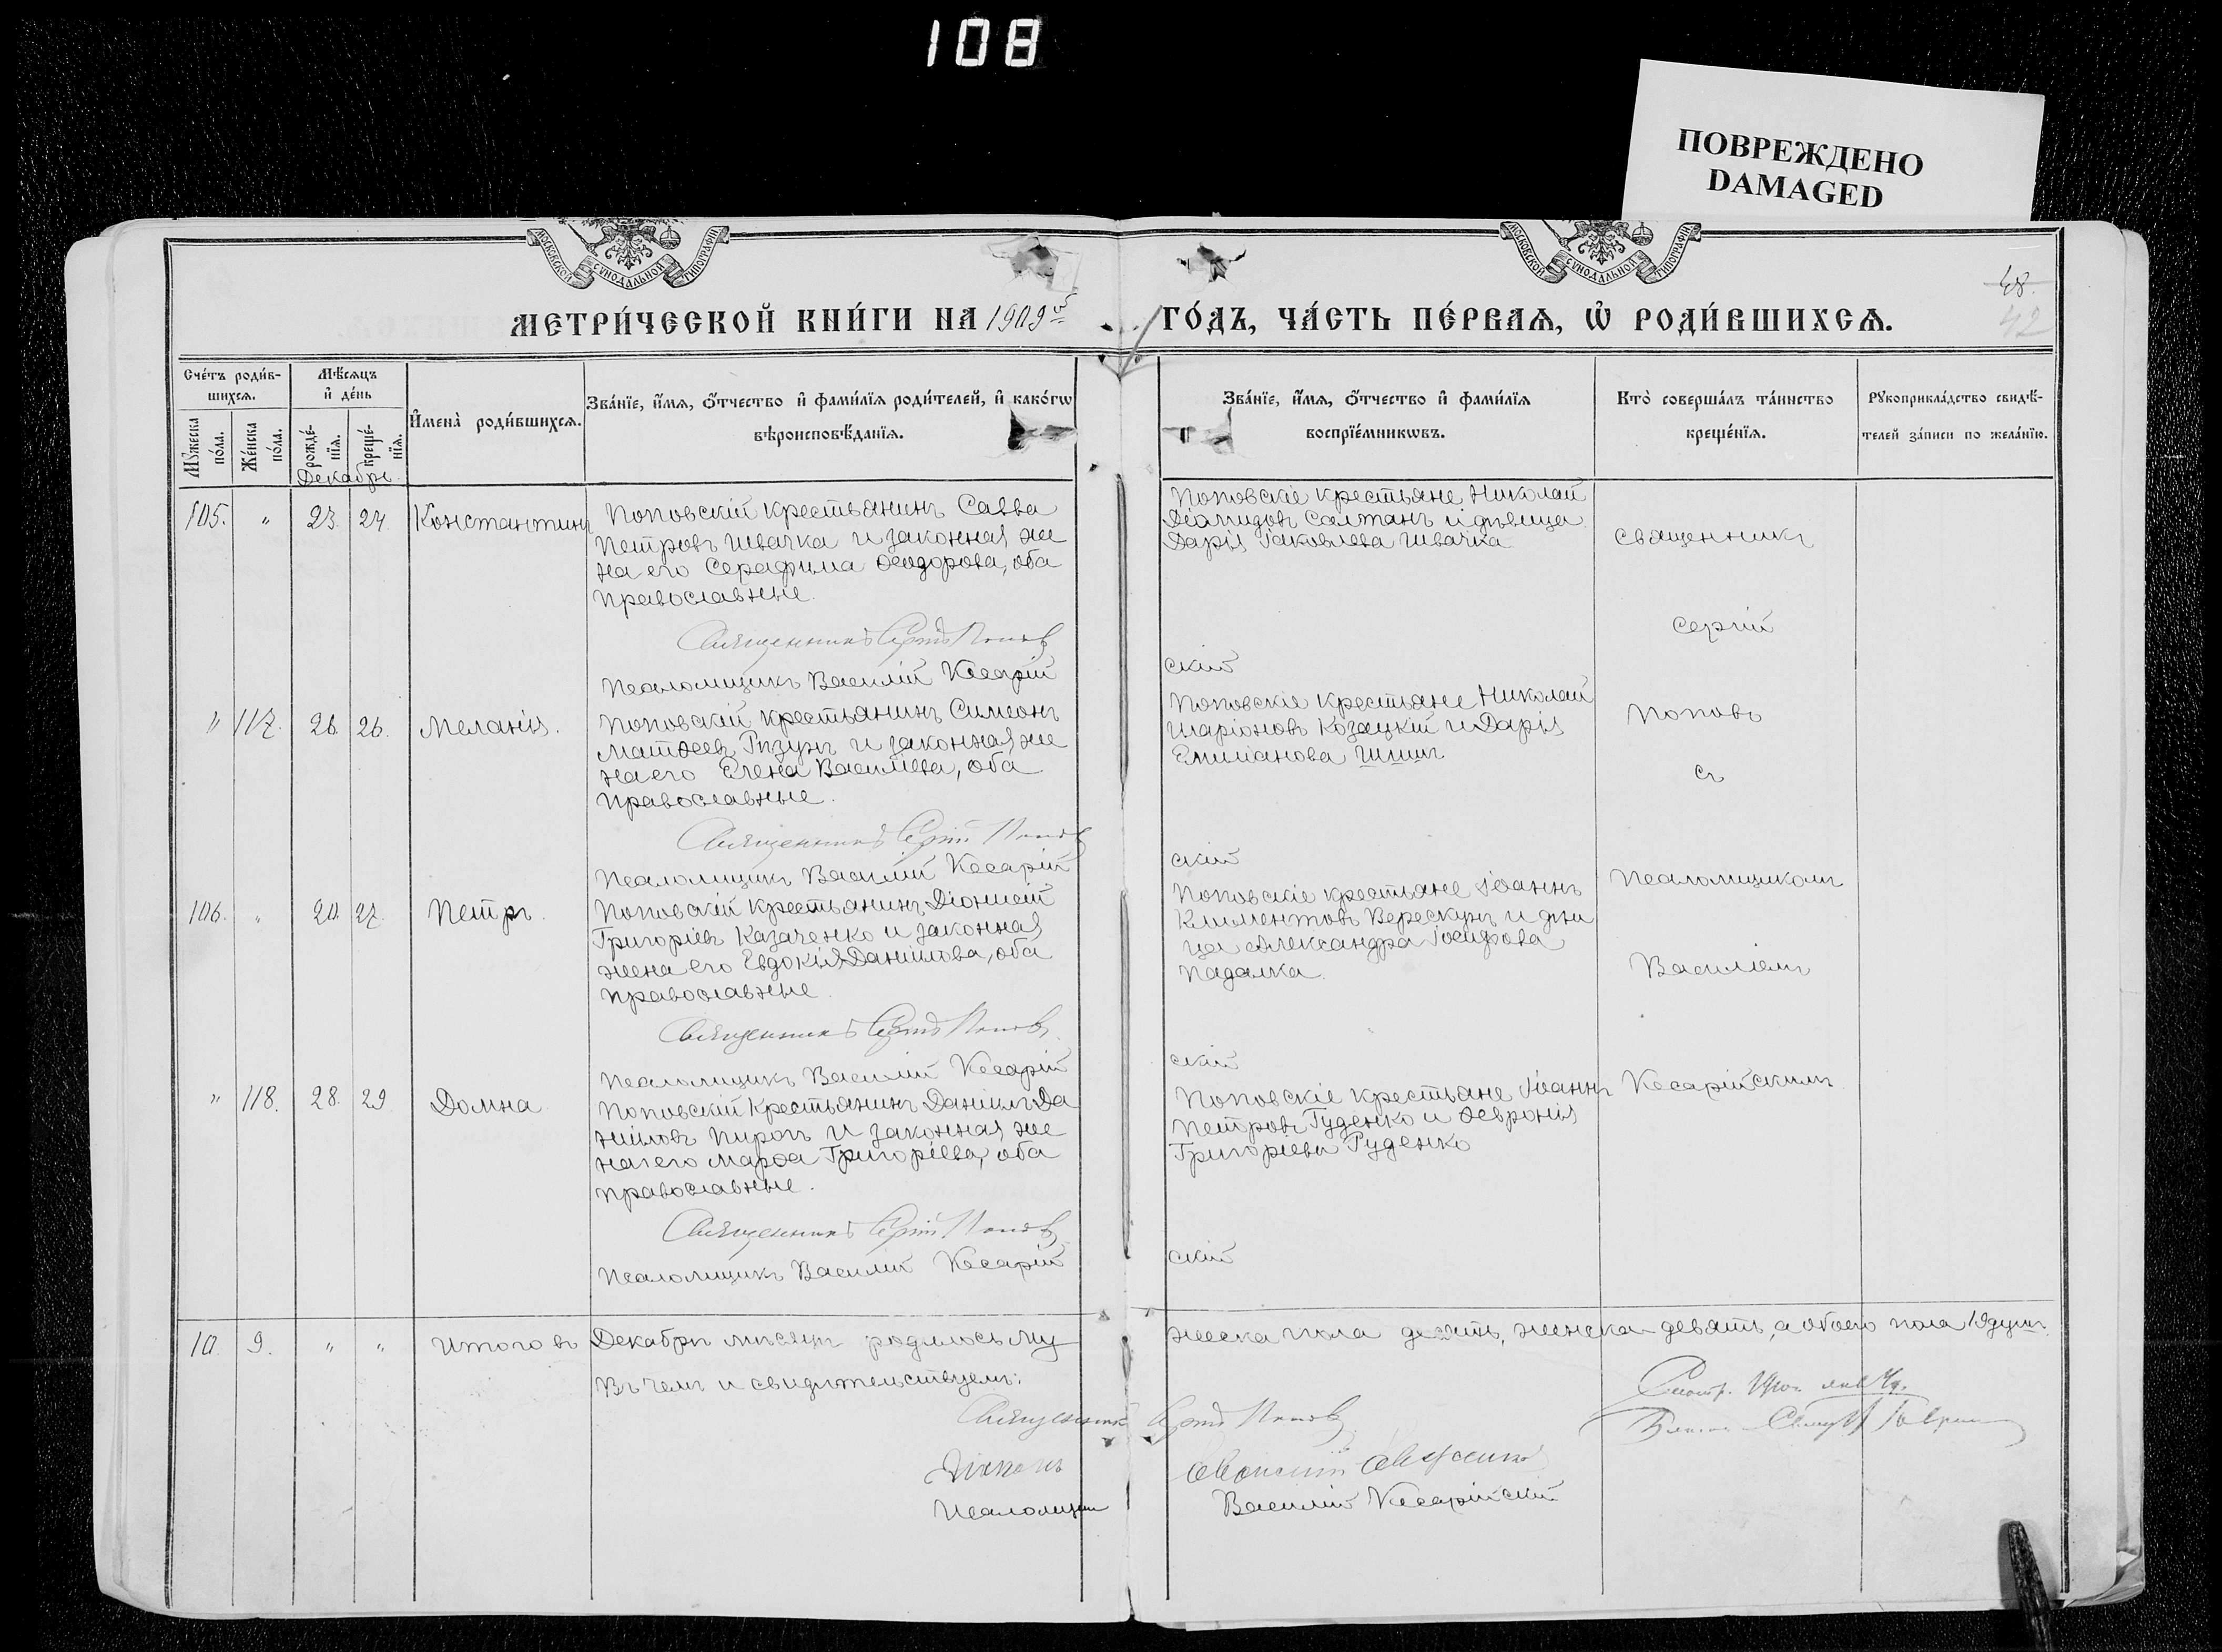 108
ПОВРЕЖДЕНО
DAMAGED
МОСКОВСКОЙ СѴНОДАЛЬНОЙ ТИПОГРАФІИ
МОСКОВСКОЙ СѴНОДАЛЬНОЙ ТИПОГРАФІИ
48.
42
МЕТРИ́ЧЕСКОЙ КНИ́ГИ НА 1909 й
ГО́ДЪ, ЧА́СТЬ ПЕ́РВАѦ, Ѡ҆ РОДИ́ВШИХСѦ.
Сче́тъ роди́в-
шихсѧ.
Мꙋ́жеска по́ла.
Же́нска по́ла.
Мѣ́сѧцъ
и҆ де́нь
рожде́-
нїѧ.
креще́-
нїѧ.
Декабрь.
И҆мена̀ роди́вшихсѧ.
Зва́нїе, и҆́мѧ, ѻ҆́тчество и҆ фами́лїѧ роди́телей, и҆ како́гѡ
вѣроисповѣ́данїѧ.
Зва́нїе, и҆́мѧ, ѻ҆́тчество и҆ фами́лїѧ
воспрїе́мникѡвъ.
Кто̀ соверша́лъ та́инство
креще́нїѧ.
Рꙋкоприкла́дство свидѣ́-
телей за́писи по жела́нїю.
105. " 23. 24. Константинъ
Поповскій крестьянинъ Савва
Петровъ Швачка и законная же
на его Серафима Ѳеодорова, оба
православные.
Священникъ Сергій Попов
Псаломщикъ Василій Кесарій
Поповскіе крестьяне Николай
Діомидовъ Салтанъ и дѣвица
Дарія Іаковлева Швачка
скій
Священникъ
Сергій
Поповъ
съ
Псаломщикомъ
Василіемъ
Кесарійскимъ
" 117. 26. 26. Меланія.
Поповскій крестьянинъ Симеонъ
Матѳеевъ Ризунъ и законная же
на его Елена Василіева, оба
православные.
Священникъ Сергій Попов
Псаломщикъ Василій Кесарій
Поповскіе крестьяне Николай
Иларіоновъ Козацкій и Дарія
Емиліанова
скій
106. " 20. 27. Петръ.
Поповскій крестьянинъ Діонисій
Григоріевъ Казаченко и законная
жена его Евдокія Даніилова, оба
православные
Священникъ Сергій Попов
Псаломщикъ Василій Кесарій
Поповскіе крестьяне Іоаннъ
Климентовъ Верескунъ и дѣви
ца Александра Іосифова
Падалка.
скій
" 118. 28. 29 Домна
Поповскій крестьянинъ Даніилъ Да
ніиловъ Пирогъ и законная же
на его Марѳа Григоріева, оба
православные.
Священникъ Сергій Попов
Псаломщикъ Василій Кесарій
Поповскіе крестьяне Іоаннъ
Петровъ Гуденко и Ѳевронія
Григоріева Руденко
скій
10. 9. " " Итого въ Декабрѣ мѣсяцѣ родилось му
жеска пола десять, женска девять, а обоего пола 19 душъ.
Въ чемъ и свидѣтельствуемъ:
Священникъ Сергій Попов
Діаконъ
Псаломщикъ
Василій Кесарійскій